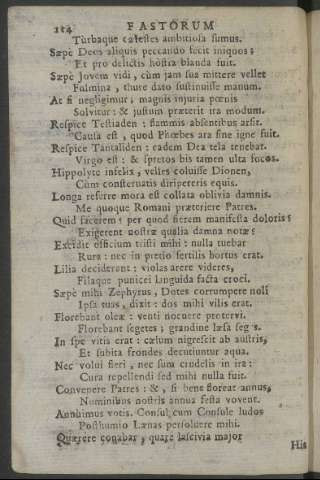 114 FASTORUM
Turbaque cælestes ambitiosa sumus.
Sæpe Deos aliquis peccando fecit iniquos;
Et pro delictis hostia blanda fuit.
Sæpe Jovem vidi, cùm jam sua mittere vellet
Fulmina, thure dato sustinuisse manum.
At si negligimur; magnis injuria pœnis
Solvitur: & justum præterit ira modum.
Respice Testiaden: flammis absentibus arsit.
Causa est, quod Phœbes ara sine igne fuit.
Respice Tantaliden: eadem Dea vela tenebat.
Virgo est: & spretos bis tamen ulta focos.
Hippolyte infelix, velles coluisse Dionen,
Cùm consternatis diripereris equis.
Longa referre mora est collata oblivia damnis.
Me quoque Romani præteriere Patres.
Quid facerem? per quod fierem manifesta doloris?
Exigerent nostræ qualia damna notæ?
Excidit officium tristi mihi: nulla tuebar
Rura: nec in pretio fertilis hortus erat.
Lilia deciderant: violas arere videres,
Filaque punicei languida facta croci.
Sæpe mihi Zephyrus, Dotes corrumpere noli
Ipsa tuas, dixit: dos mihi vilis erat.
Florebant oleæ: venti nocuere protervi.
Florebant segetes; grandine læsa seges.
In spe vitis erat: cælum nigrescit ab austris,
Et subita frondes decutiuntur aqua.
Nec volui fieri, nec sum crudelis in ira:
Cura repellendi sed mihi nulla fuit.
Convenere Patres: &, si bene floreat annus,
Numinibus nostris annua festa vovent.
Annuimus votis. Consul cum Consule ludos
Posthumio Lænas persoluere mihi.
Quærere conabar, quare lascivia major
His